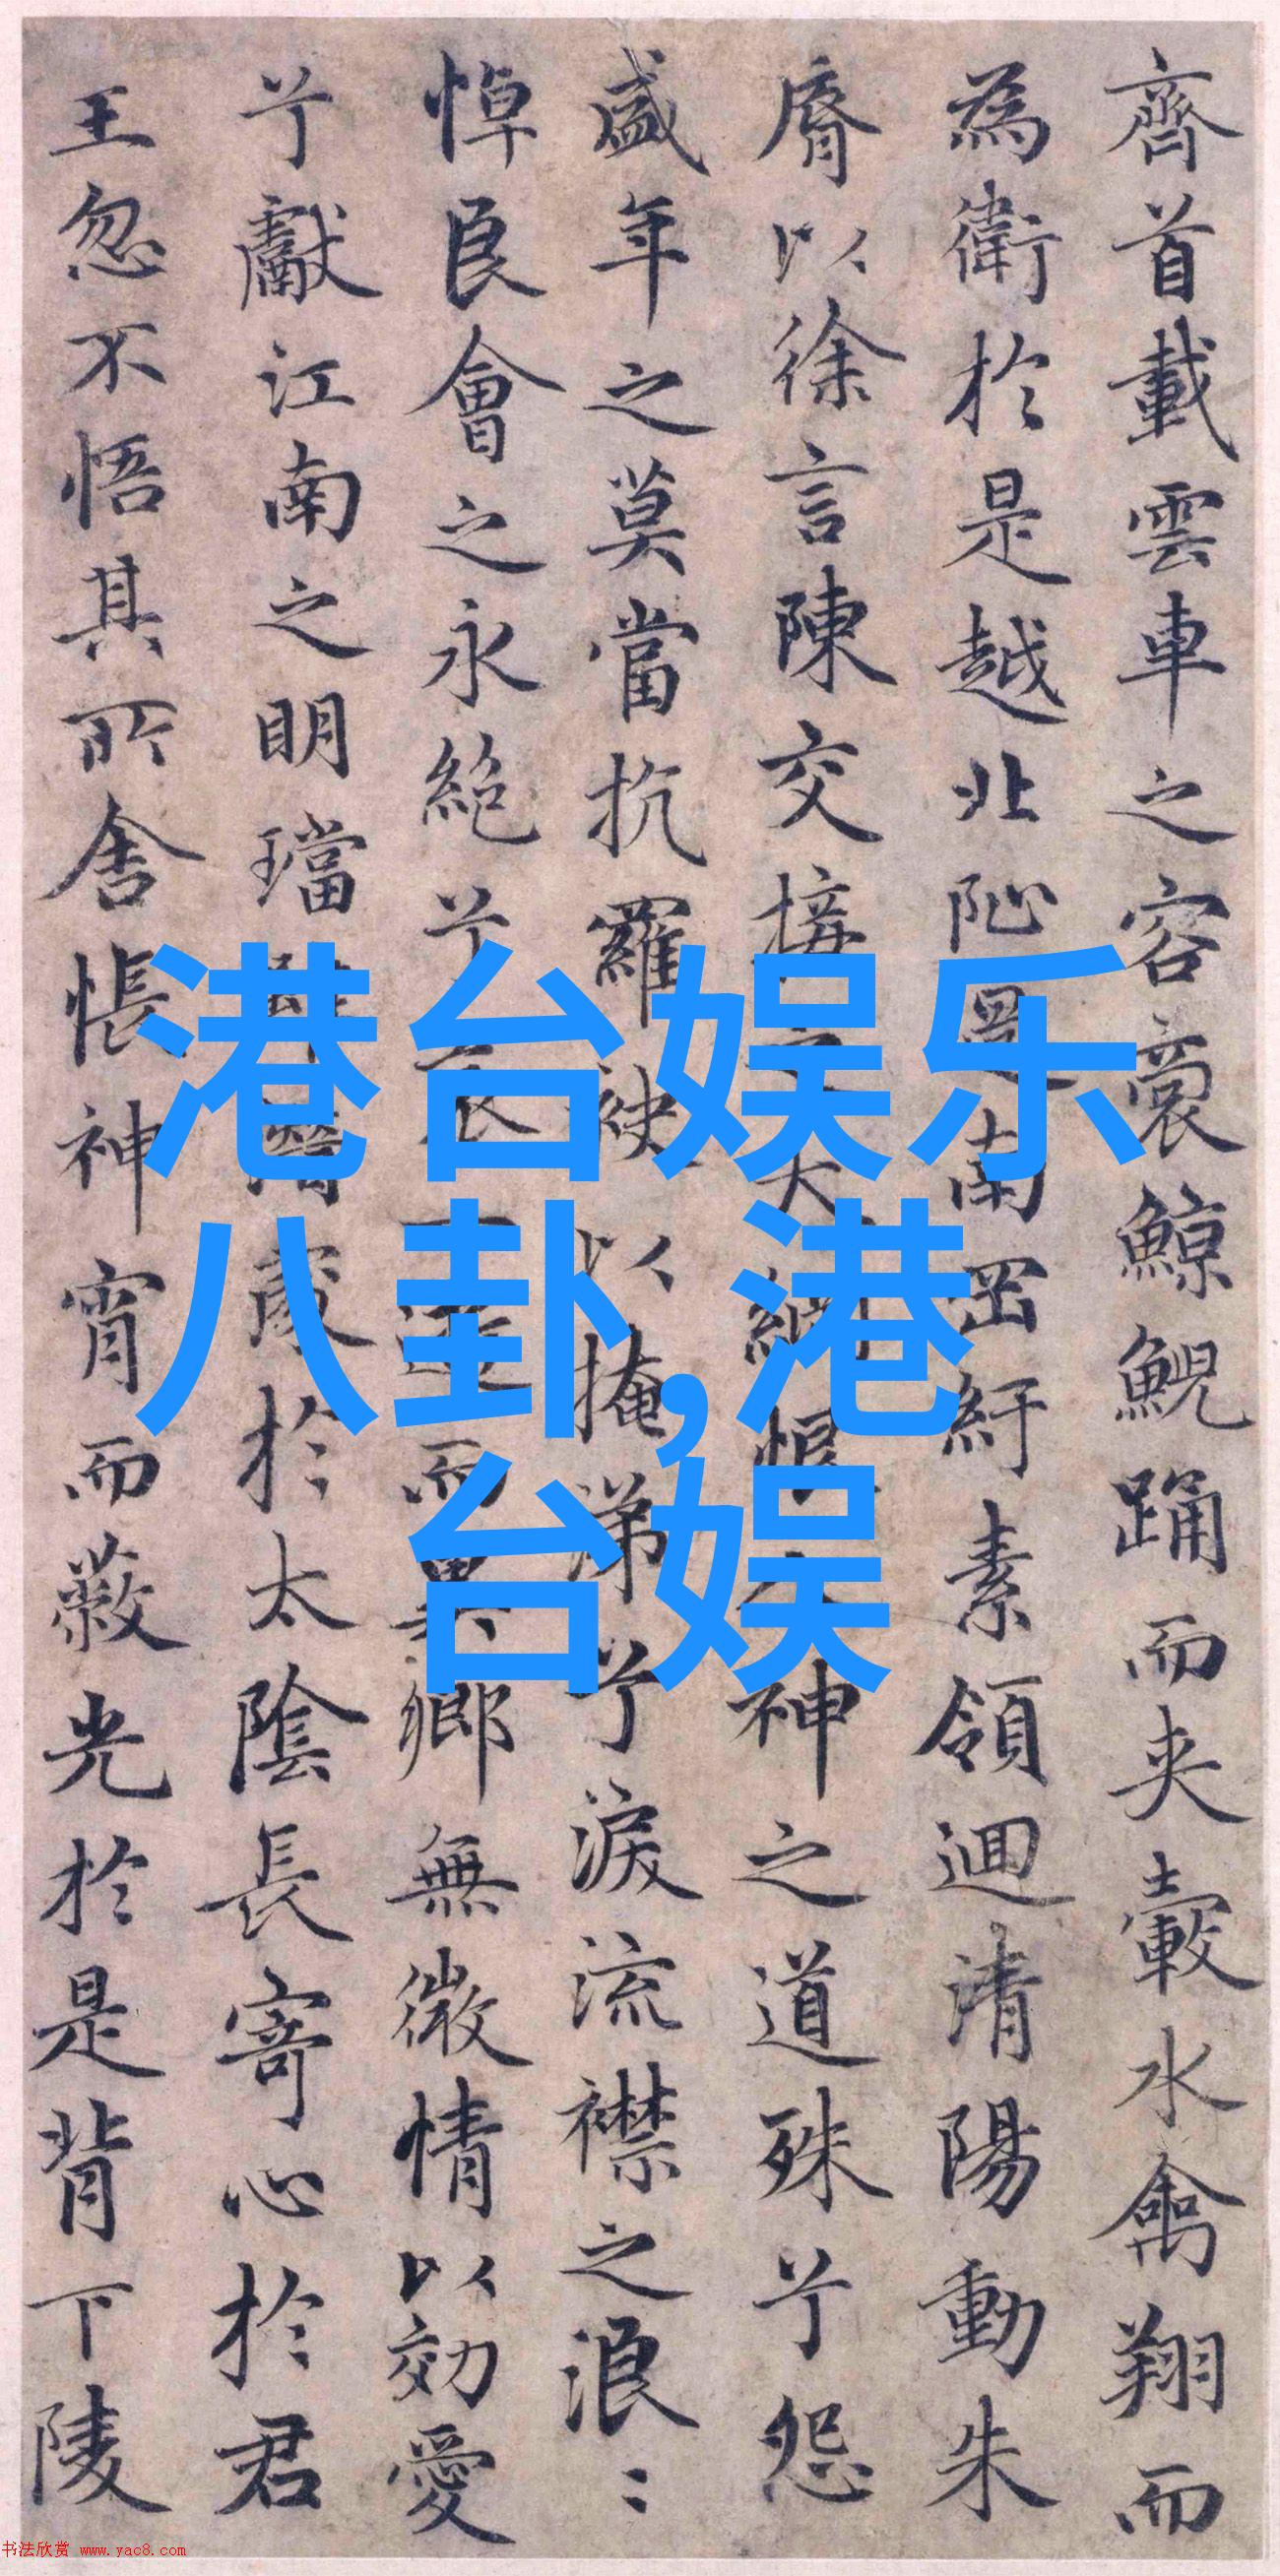 齊首載雲車之容裔鯨鯢踊而夾轂水禽翔而
為衛於是越北沚過南岡紆素領迴清陽動朱
脣以徐言陳交接之大綱恨人神之道殊兮怨
盛年之莫當抗羅袂以掩涕兮淚流襟之浪〻
悼良會之永絕兮哀一逝而異鄉無微情以効愛
兮獻江南之明璫雖潛處於太陰長寄心於君
王忽不悟其所舍悵神宵而蔽光於是背下陵
港台娱乐
八卦,港
台娱
书法欣赏 www.yac8.com